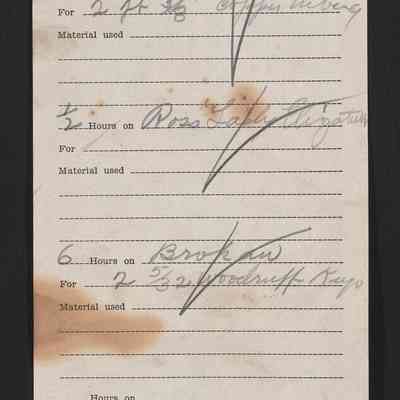 For 2 ft 3/8 Copper tubing
Material used
1/2 Hours on Ross
For
Material used
6 Hours on Brokaw
For 2 5/32 Woodruff Keys
Material used
Hours on